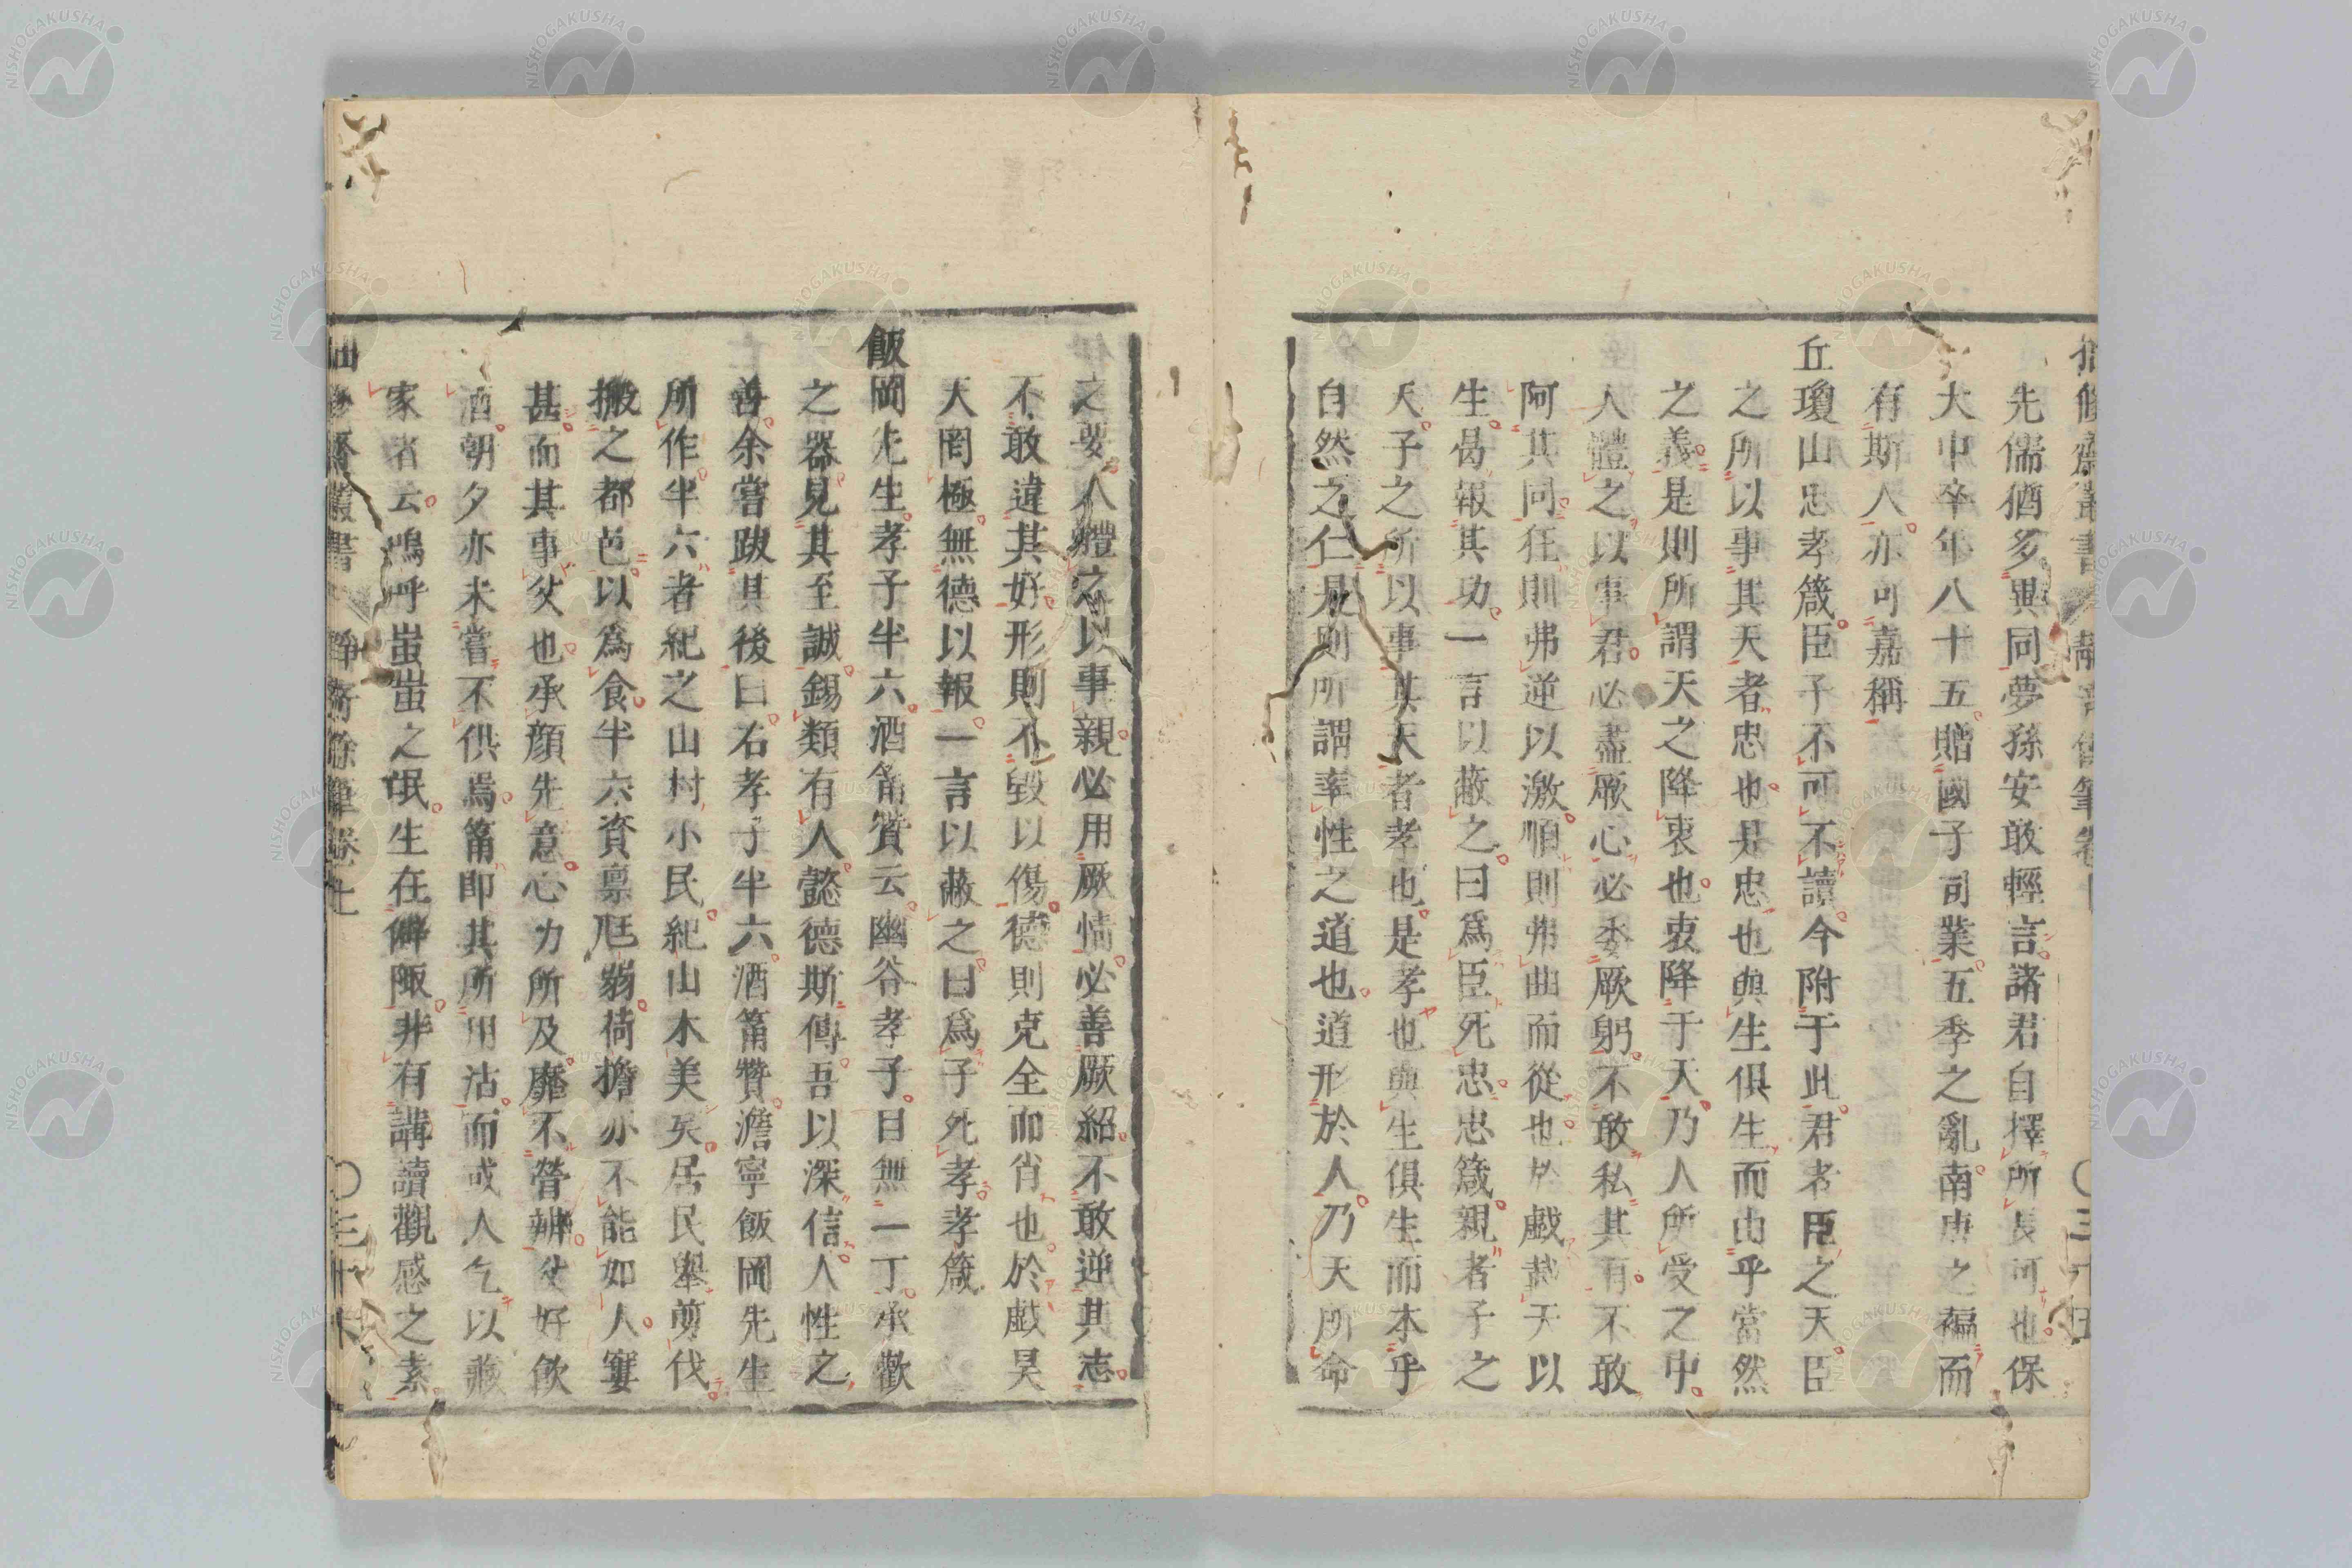 先儒猶多異同夢孫安敢輕言諸君自擇所長可也保
大中卒年八十五贈國子司業五季之亂南唐之褊而
有斯人亦可嘉稱
丘瓊山忠孝箴臣子不可不讀今附于此君者臣之天臣
之所以事其天者忠也是忠也與生俱生而由乎當然
之義是則所謂天之降衷也衷降于天乃人所受之中
人體之以事君必盡厥心必委厥躬不敢私其有不敢
阿其同狂則弗逆以激怕則弗曲而從也於戲蓋天以
生曷報其功一言以蔽之曰爲臣死忠忠箴親者子之
天子之所以事其天者孝也是孝也與生俱生而本乎
自然之仁是則所謂率性之道也道形於人乃天所命
之要人體之以事親必用厥情必善厥紹不敢逆其志
不敢違其好形則不毀以傷德則克全而肖也於戲昊
天罔極無德以報一言以蔽之曰爲子死孝孝箴
飯岡先生孝子半六酒筩贊云幽谷孝子目無一丁承歡
之器見其至誠錫類有人懿德斯傳吾以深信人性之
善余嘗跋其後曰右孝子半六酒筩贊澹寧飯岡先生
所作半六者紀之山村小民紀山木美矣居民舉剪伐
搬之都邑以爲食半六資稟尫弱荷擔亦不能如人窶
甚而其事父也承顏先意心力所及靡不營辨父好飮
酒朝夕亦未嘗不供焉筩即其所用沽而或人乞以藏
家者云嗚呼蚩蚩之氓生在僻陬非有講讀觀感之素